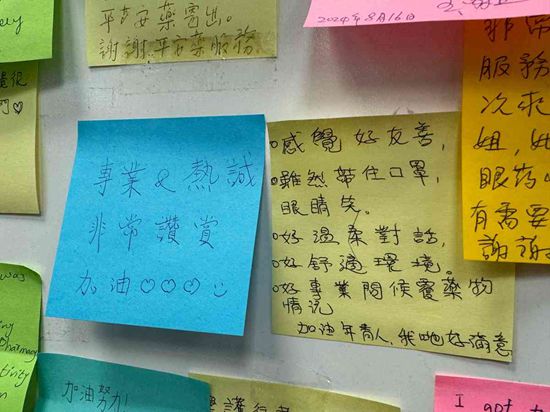 ely
平芦安藥寄出。
謝謝平安藥服務
2024年8月16日
非常
服務
次來
姐,
眼药
有需要
謝謝
專業&熱誠
非常讚賞
加油♡♡♡☺
。感覺好友善,
。雖然帶住口罩,
眼睛笑。
。好溫柔對話,
。好舒適環境。
。好專業問候覆藥物
情况
加油年青人,我哋好滿意
was
ing
Pharmacy
tivity
in
加油努力!
I got